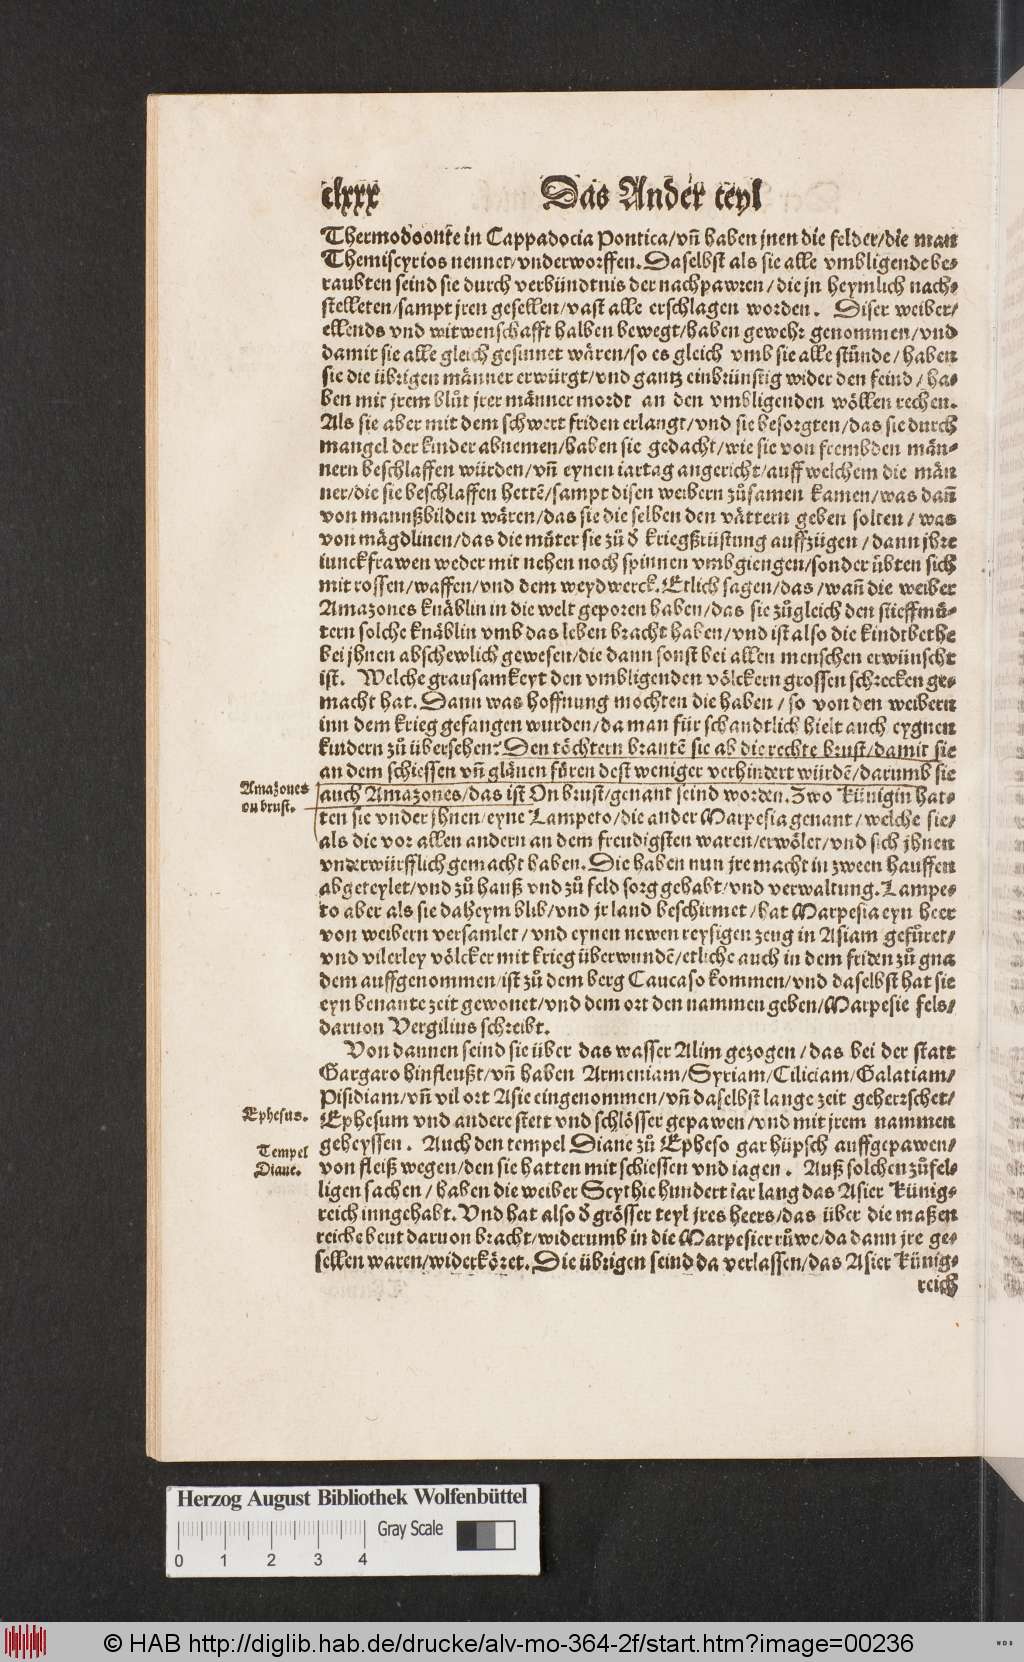 clxxx Das Ander teyl
Thermodoonte in Cappadocia Pontica/vñ haben jnen die felder/die man
Themiscyrios nennet/vnderworffen. Daselbst als sie alle vmbligende be⸗
raubten seind sie durch verbündtnis der nachpawren/die jn heymlich nach⸗
stelleten/sampt jren gesellen/vast alle erschlagen worden. Diser weiber/
ellends vnd witwenschafft halben bewegt/haben gewehr genommen/vnd
damit sie alle gleich gesinnet wären/so es gleich vmb sie alle stünde/haben
sie die übrigen männer erwürgt/vnd gantz einbrünstig wider den feind/ha⸗
ben mit jrem blůt jrer männer mordt an den vmbligenden wöllen rechen.
Als sie aber mit dem schwert friden erlangt/vnd sie besorgten/das sie durch
mangel der kinder abnemen/haben sie gedacht/wie sie von frembden män⸗
nern beschlaffen würden/vñ eynen iartag angericht/auff welchem die män
ner/die sie beschlaffen hettē/sampt disen weibern zůsamen kamen/was dañ
von mannßbilden wären/das sie die selben den vättern geben solten/was
von mägdlinen/das die můter sie zů ð kriegßrüstung auffzügen/dann jhre
iunckfrawen weder mit nehen noch spinnen vmbgiengen/sonder übten sich
mit rossen/waffen/vnd dem weydwerck. Etlich sagen/das/wañ die weiber
Amazones knäblin in die welt geporen haben/das sie zůgleich den stieffmů⸗
tern solche knäblin vmb das leben bracht haben/vnd ist also die kindtbethe
bei jhnen abschewlich gewesen/die dann sonst bei allen menschen erwünscht
ist. Welche grausamkeyt den vmbligenden völckern grossen schrecken ge⸗
macht hat. Dann was hoffnung mochten die haben/so von den weibern
inn dem krieg gefangen wurden/da man für schandtlich hielt auch eygnen
kindern zů übersehen? Den töchtern brantē sie ab die rechte brust/damit sie
an dem schiessen vñ glänen fůren dest weniger verhindert würdē/darumb sie
Amazones
on brust.
auch Amazones/das ist On brust/genant seind worden. Zwo Künigin hat⸗
ten sie vnder jhnen/eyne Lampeto/die ander Marpesia genant/welche sie/
als die vor allen andern an dem freudigsten waren/erwölet/vnd sich jhnen
vnderwürfflich gemacht haben. Die haben nun jre macht in zween hauffen
abgeteylet/vnd zů hauß vnd zů feld sorg gehabt/vnd verwaltung. Lampe⸗
to aber als sie daheym blib/vnd jr land beschirmet/hat Marpesia eyn heer
von weibern versamlet/vnd eynen newen reysigen zeug in Asiam gefůret/
vnd vilerley völcker mit krieg überwundē/etliche auch in dem friden zů gna
dem auffgenommen/ist zů dem berg Caucaso kommen/vnd daselbst hat sie
eyn benante zeit gewonet/vnd dem ort den nammen geben/Marpesie fels/
daruon Vergilius schreibt.
Von dannen seind sie über das wasser Alim gezogen/das bei der statt
Gargaro hinfleußt/vñ haben Armeniam/Syriam/Ciliciam/Galatiam/
Pisidiam/vñ vil ort Asie eingenommen/vñ daselbst lange zeit geherrschet/
Ephesus.
Ephesum vnd andere stett vnd schlösser gepawen/vnd mit jrem nammen
geheyssen. Auch den tempel Diane zů Epheso gar hüpsch auffgepawen/
Tempel
Diane.
von fleiß wegen/den sie hatten mit schiessen vnd iagen. Auß solchen zůfel⸗
ligen sachen/haben die weiber Scythie hundert iar lang das Asier Künig⸗
reich inngehabt. Vnd hat also ð grösser teyl jres heers/das über die maßen
reiche beut daruon bracht/widerumb in die Marpesier růwe/da dann jre ge⸗
sellen waren/widerköret. Die übrigen seind da verlassen/das Asier Künig⸗
reich
Herzog August Bibliothek Wolfenbüttel
Gray Scale
0 1 2 3 4
© HAB http://diglib.hab.de/drucke/alv-mo-364-2f/start.htm?image=00236